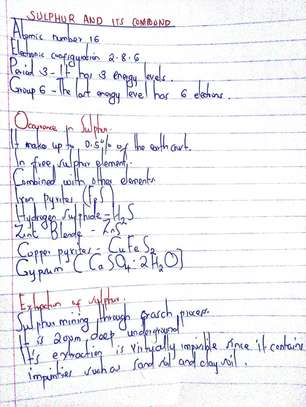 SULPHUR AND ITS COMPOUND
Atomic number 16
Electronic configuration 2.8.6
Period 3 - It has 3 energy levels.
Group 6 - The last energy level has 6 electrons.
Occurance in Sulphur
It make up to 0.5% of the earth crust.
In free sulphur element.
Combined with other elements
Iron pyrites (FeS)
Hydrogen Sulphide - H₂S
Zinc Blende - ZnS
Copper pyrites - CuFeS₂
Gypsum (CaSO₄·2H₂O)
Extraction of sulphur
Sulphur mining through frasch process.
It is 200m deep underground
It's extraction is virtually impossible since it contains
impurities such as sand soil and clay soil.